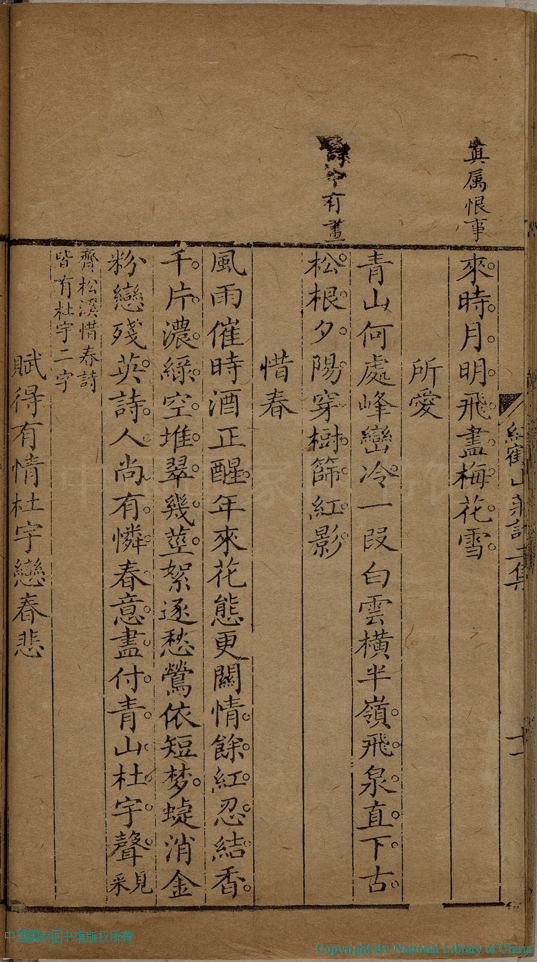 真属恨事
來時月明飛盡梅花雪
所愛
青山何處峰巒冷一段白雲橫半嶺飛泉直下古
中有畫
松根夕陽穿樹篩紅影
惜春
風雨催時酒正醒年來花態更關情餘紅忍結香
千片濃綠空堆翠幾莖絮逐愁鶯依短梦蜨消金
粉戀殘英詩人尚有憐春意盡付青山杜宇聲見采
齊松溪惜春詩
皆有杜宇二字
賦得有情杜宇戀春悲
紅鶴山莊詩二集
十一
Copyright By National Library of China